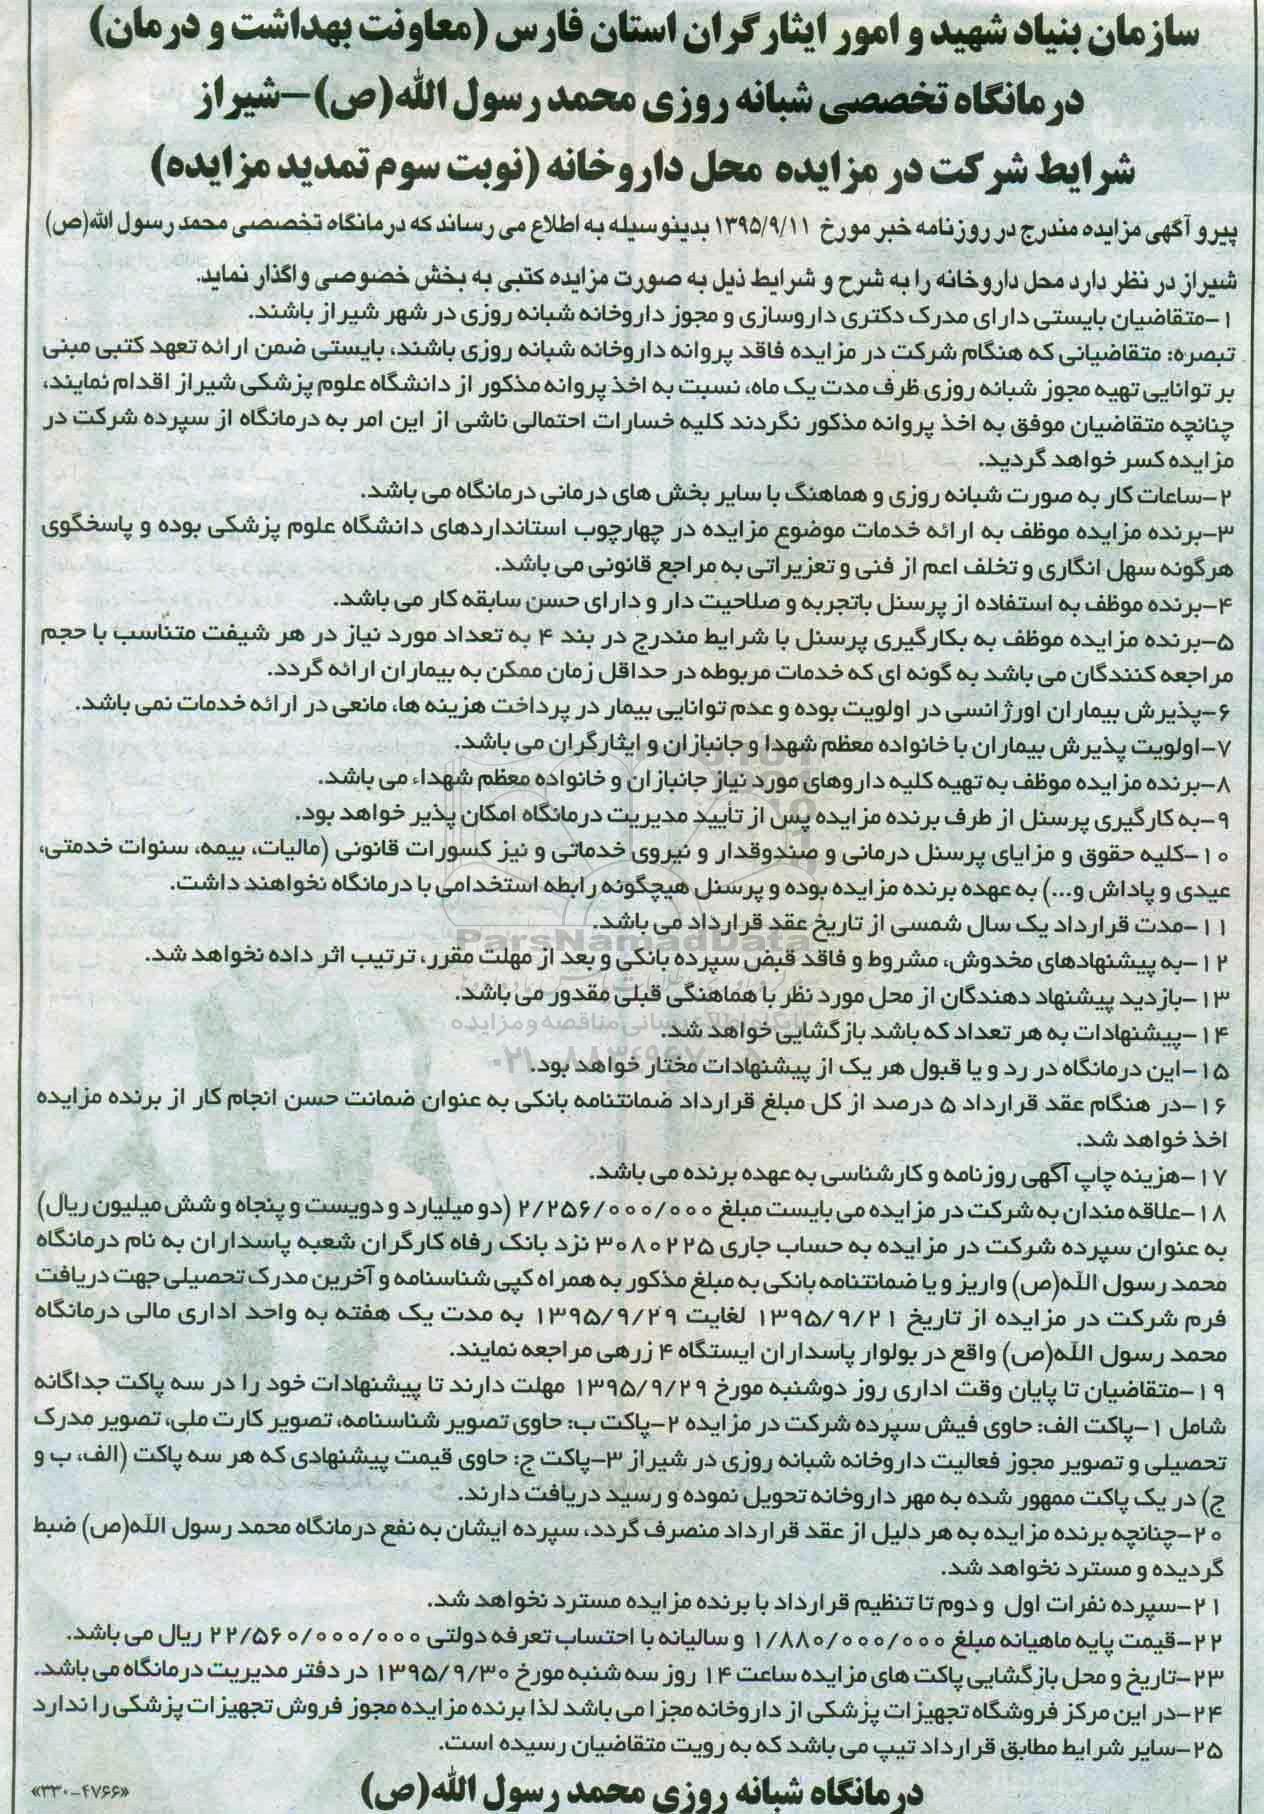 سازمان بنیاد شهید و امور ایثارگران استان فارس (معاونت بهداشت و درمان)
درمانگاه تخصصی شبانه روزی محمد رسول الله(ص)–شیراز
شرایط شرکت در مزایده محل داروخانه (نوبت سوم تمدید مزایده)
پیرو آگهی مزایده مندرج در روزنامه خبر مورخ ۱۳۹۵/۹/۱۱ بدینوسیله به اطلاع می رساند که درمانگاه تخصصی محمد رسول الله(ص)
شیراز در نظر دارد محل داروخانه را به شرح و شرایط ذیل به صورت مزایده کتبی به بخش خصوصی واگذار نماید.
۱–متقاضیان بایستی دارای مدرک دکتری داروسازی و مجوز داروخانه شبانه روزی در شهر شیراز باشند.
تبصره: متقاضیانی که هنگام شرکت در مزایده فاقد پروانه داروخانه شبانه روزی باشند، بایستی ضمن ارائه تعهد کتبی مبنی
بر توانایی تهیه مجوز شبانه روزی ظرف مدت یک ماه، نسبت به اخذ پروانه مذکور از دانشگاه علوم پزشکی شیراز اقدام نمایند،
چنانچه متقاضیان موفق به اخذ پروانه مذکور نگردند کلیه خسارات احتمالی ناشی از این امر به درمانگاه از سپرده شرکت در
مزایده کسر خواهد گردید.
۲–ساعات کار به صورت شبانه روزی و هماهنگ با سایر بخش های درمانی درمانگاه می باشد.
۳–برنده مزایده موظف به ارائه خدمات موضوع مزایده در چهارچوب استانداردهای دانشگاه علوم پزشکی بوده و پاسخگوی
هرگونه سهل انگاری و تخلف اعم از فنی و تعزیراتی به مراجع قانونی می باشد.
۴–برنده موظف به استفاده از پرسنل باتجربه و صلاحیت دار و دارای حسن سابقه کار می باشد.
۵–برنده مزایده موظف به بکارگیری پرسنل با شرایط مندرج در بند ۴ به تعداد مورد نیاز در هر شیفت متناسب با حجم
مراجعه کنندگان می باشد به گونه ای که خدمات مربوطه در حداقل زمان ممکن به بیماران ارائه گردد.
۶–پذیرش بیماران اورژانسی در اولویت بوده و عدم توانایی بیمار در پرداخت هزینه ها، مانعی در ارائه خدمات نمی باشد.
۷–اولویت پذیرش بیماران با خانواده معظم شهدا و جانبازان و ایثارگران می باشد.
۸–برنده مزایده موظف به تهیه کلیه داروهای مورد نیاز جانبازان و خانواده معظم شهداء می باشد.
۹–به کارگیری پرسنل از طرف برنده مزایده پس از تأیید مدیریت درمانگاه امکان پذیر خواهد بود.
۱۰–کلیه حقوق و مزایای پرسنل درمانی و صندوقدار و نیروی خدماتی و نیز کسورات قانونی (مالیات، بیمه، سنوات خدمتی،
عیدی و پاداش و...) به عهده برنده مزایده بوده و پرسنل هیچگونه رابطه استخدامی با درمانگاه نخواهند داشت.
۱۱–مدت قرارداد یک سال شمسی از تاریخ عقد قرارداد می باشد.
ParsNamadData
۱۲–به پیشنهادهای مخدوش، مشروط و فاقد قبض سپرده بانکی و بعد از مهلت مقرر، ترتیب اثر داده نخواهد شد.
۱۳–بازدید پیشنهاد دهندگان از محل مورد نظر با هماهنگی قبلی مقدور می باشد.
۱۴–پیشنهادات به هر تعداد که باشد بازگشایی خواهد شد.
۱۵–این درمانگاه در رد و یا قبول هر یک از پیشنهادات مختار خواهد بود.
۱۶–در هنگام عقد قرارداد ۵ درصد از کل مبلغ قرارداد ضمانتنامه بانکی به عنوان ضمانت حسن انجام کار از برنده مزایده
اخذ خواهد شد.
۱۷–هزینه چاپ آگهی روزنامه و کارشناسی به عهده برنده می باشد.
۱۸–علاقه مندان به شرکت در مزایده می بایست مبلغ ۲/۲۵۶/۰۰۰/۰۰۰ (دو میلیارد و دویست و پنجاه و شش میلیون ریال)
به عنوان سپرده شرکت در مزایده به حساب جاری ۳۰۸۰۲۲۵ نزد بانک رفاه کارگران شعبه پاسداران به نام درمانگاه
محمد رسول الله(ص) واریز و یا ضمانتنامه بانکی به مبلغ مذکور به همراه کپی شناسنامه و آخرین مدرک تحصیلی جهت دریافت
فرم شرکت در مزایده از تاریخ ۱۳۹۵/۹/۲۱ لغایت ۱۳۹۵/۹/۲۹ به مدت یک هفته به واحد اداری مالی درمانگاه
محمد رسول الله(ص) واقع در بولوار پاسداران ایستگاه ۴ زرهی مراجعه نمایند.
۱۹–متقاضیان تا پایان وقت اداری روز دوشنبه مورخ ۱۳۹۵/۹/۲۹ مهلت دارند تا پیشنهادات خود را در سه پاکت جداگانه
شامل ۱–پاکت الف: حاوی فیش سپرده شرکت در مزایده ۲–پاکت ب: حاوی تصویر شناسنامه، تصویر کارت ملی، تصویر مدرک
تحصیلی و تصویر مجوز فعالیت داروخانه شبانه روزی در شیراز ۳–پاکت ج: حاوی قیمت پیشنهادی که هر سه پاکت (الف، ب و
ج) در یک پاکت ممهور شده به مهر داروخانه تحویل نموده و رسید دریافت دارند.
۲۰–چنانچه برنده مزایده به هر دلیل از عقد قرارداد منصرف گردد، سپرده ایشان به نفع درمانگاه محمد رسول الله(ص) ضبط
گردیده و مسترد نخواهد شد.
۲۱–سپرده نفرات اول و دوم تا تنظیم قرارداد با برنده مزایده مسترد نخواهد شد.
۲۲–قیمت پایه ماهیانه مبلغ ۱/۸۸۰/۰۰۰/۰۰۰ و سالیانه با احتساب تعرفه دولتی ۲۲/۵۶۰/۰۰۰/۰۰۰ ریال می باشد.
۲۳–تاریخ و محل بازگشایی پاکت های مزایده ساعت ۱۴ روز سه شنبه مورخ ۱۳۹۵/۹/۳۰ در دفتر مدیریت درمانگاه می باشد.
۲۴–در این مرکز فروشگاه تجهیزات پزشکی از داروخانه مجزا می باشد لذا برنده مزایده مجوز فروش تجهیزات پزشکی را ندارد
۲۵–سایر شرایط مطابق قرارداد تیپ می باشد که به رویت متقاضیان رسیده است.
درمانگاه شبانه روزی محمد رسول الله(ص)
«۳۳۰-۴۷۶۶»